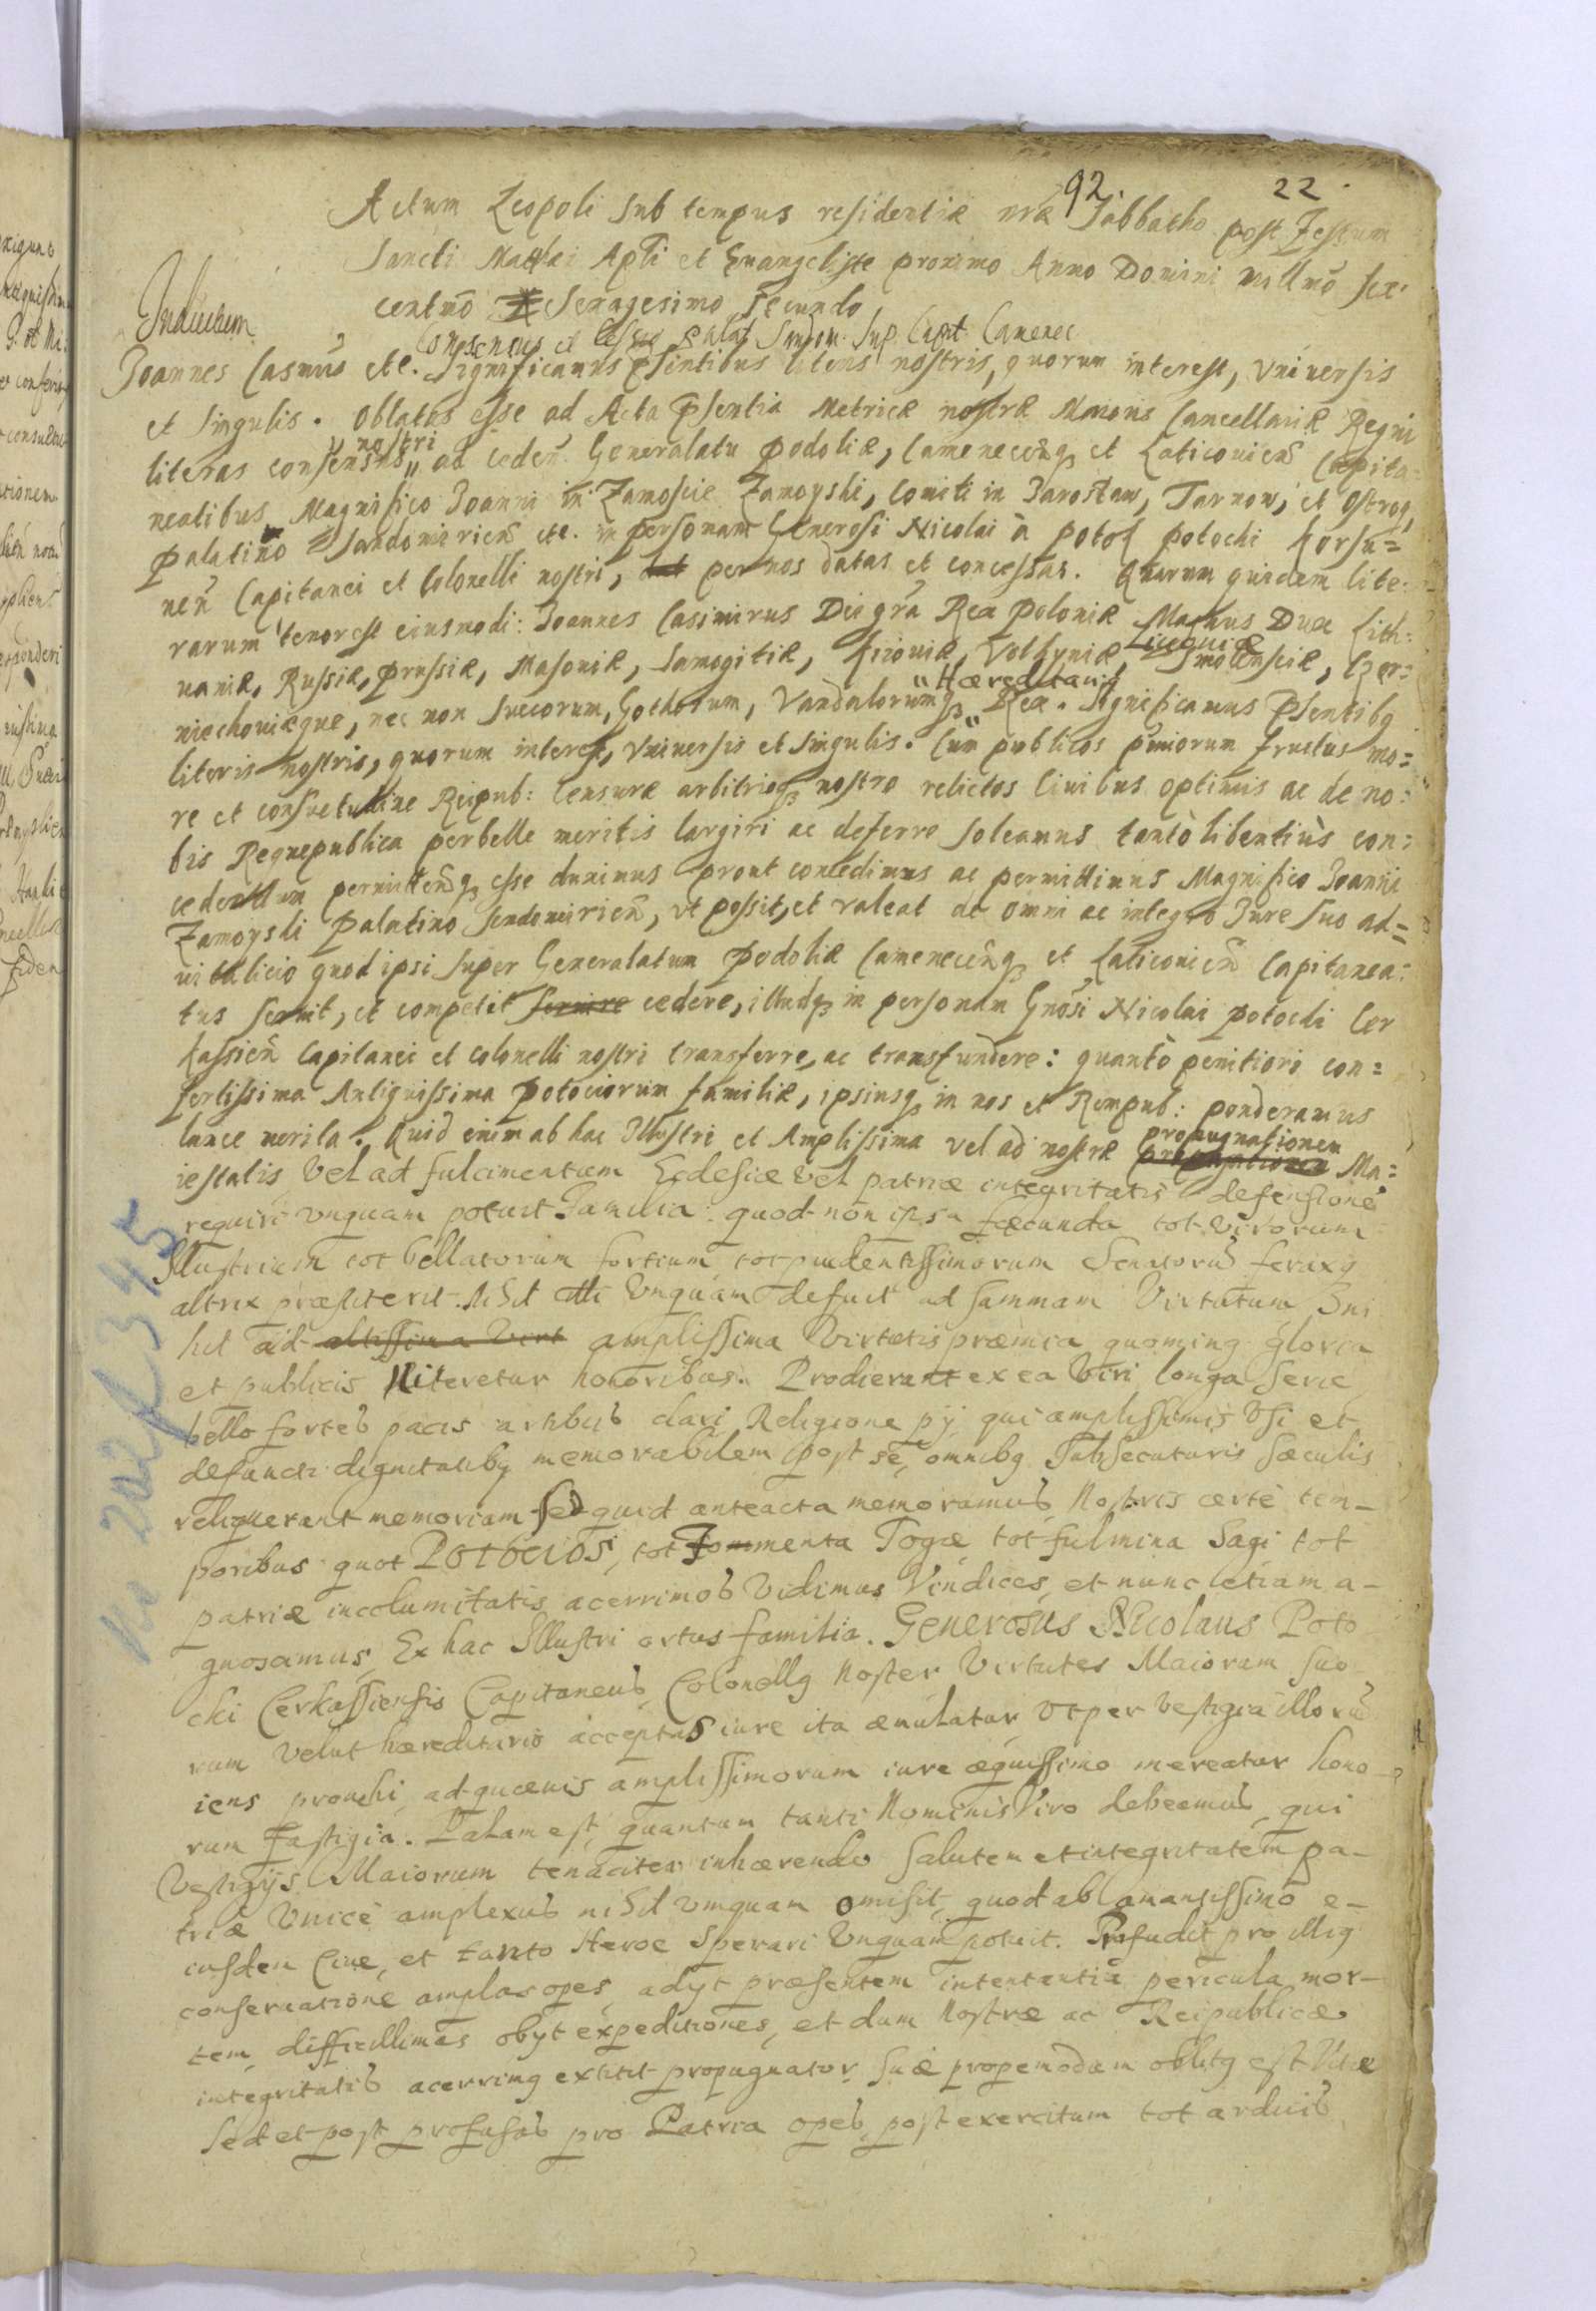 92. 22
Actum Leopoli Sub tempus residentiæ nræ Sabbatho post Festum
Sancti Matthæi Apli et Euangelistæ proximo Anno Domini millmo sex
centmo Sexagesimo Secundo
Inductum
Consensus et Capit Camenec
Joannes Casmus etc. Significamus pntibus literis nostris, quorum interest, vniuersis
et singulis. Oblatas esse ad Acta pntia Metricæ nostræ Maioris Cancellariæ Regni
literas consensus nostri ad ceden Generalatu Podoliæ, Camenecenq et Laticouien Capita-
neatibus Magnifico Joanni in Zamoscie Zamoyski, Comiti in Jarosław, Tarnow, et Ostrog,
Palatino Sandomirien etc. in personam Generosi Nicolai à Potok Potocki Korsu=
nen Capitanei et Colonelli nostri, per nos datas et concessas. Quarum quidem lite-
rarum tenor est eiusmodi: Joannes Casimirus Dei gra Rex Poloniæ Magnus Dux Lith:
uaniæ, Russiæ, Prussiæ, Masouiæ, Samogitiæ, Kiiouiæ, Volhyniæ, Smolensciæ, Czer=
niechouiæque, nec non Suecorum, Gothorum, Vandalorumq Hæreditarius Rex. Significamus pntibq
literis nostris, quorum interest, vniuersis et singulis. Cum publicos pmiorum fructus mo=
re et consuetudine Reipub: Censuræ arbitrioq nostro relictos Ciuibus optimis ac de no:
bis Reque publica perbelle meritis largiri ac deferre soleamus tantò libentiùs con=
cedendum permittenq esse duximus prout concedimus ac permittimus Magnifico Joanni
Zamoyski Palatino Sendomirien, vt possit, et valeat de omni ac integro Jure suo ad=
uitalicio quod ipsi super Generalatum Podoliæ Camenecenq et Laticouien Capitanea:
tus seruit, et competit seruire cedere, illudq in personam Gnosi Nicolai Potocki Cer
kassien Capitanei et Colonelli nostri transferre, ac transfundere: quantò penitiori con=
fertissima Antiquissima Potociorum familiæ, ipsiusq in nos et Rempub: ponderamus
lance merita. Quid enim ab hac Illustri et Amplissima vel ad nostræ propugnationem Ma=
iestatis vel ad fulcimentum Ecclesiæ vel patriæ integritatis defensione
requiri vnquam potuit Familia: quod non ipsa fæcunda tot virorum
Illustrium tot bellatorum fortium, tot prudentissimorum Senatoru feraxq
altrix præstiterit. Nihil illi vnquam defuit ad summam Virtutum, Ni
hil ad altissima Virt amplissima Virtutis præmia quominq gloria
et publicis Niteretur honoribus. Prodierunt ex ea Viri longa Serie
bello fortes pacis artibus clari Religione pij, qui amplissimis vsi et
defuncti dignitatibq memorabilem post se, omnibq Subsecuturis Sæculis
reliquerunt memoriam Sed quid anteacta memoramus, Nostris certe tem-
poribus quot Potocios, tot menta Togæ tot fulmina Sagi tot
patriæ incolumitatis acerrimos vidimus Vindices, et nunc etiam a-
gnoscimus, Ex hac Illustri ortus familia. Generosus Nicolaus Poto
cki Cerkassiensis Capitaneus Colonellq Noster Virtutes Maiorum suo
rum Velut hæreditario acceptas iure ita æmulatur Vt per vestigia illoru
iens prouehi, ad quæuis amplissimorum iure æquissimo mereatur hono-
rum fastigia. Palam est, quantum tanti Nominis Viro debeamus, qui
Vestigijs Maiorum tenaciter inhærendo Salutem et integritatem pa-
triæ Vnicè amplexus nihil vnquam omisit, quod ab amantissimo e-
iusdem Ciue, et tanto Heroe Sperari Vnquam potuit. Profudit pro illiq
conseruatione amplas opes, adyt præsentem intentantia pericula mor-
tem, difficillimas obyt expeditiones, et dum Nostræ ac Reipublicæ
integritatis acerrimq extitit propugnator Suæ propemodum oblitq est Vitæ
Sed et post profusas pro Patria opes, post exercitum tot arduis